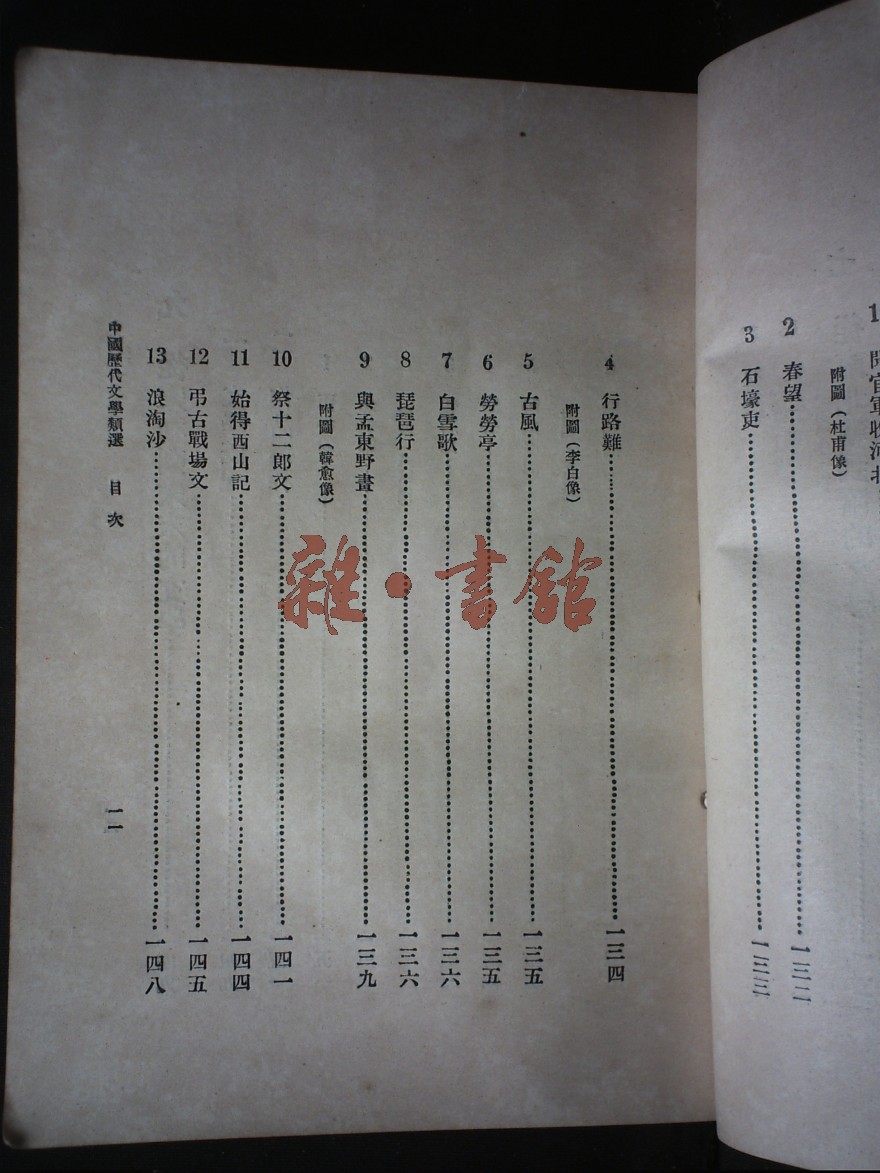 1 聞官軍收河北
附圖（杜甫像）
2 春望……一三二
3 石壕吏……一三三
4 行路難……一三四
附圖（李白像）
5 古風……一三五
6 勞勞亭……一三五
7 白雪歌……一三六
8 琵琶行……一三六
9 與孟東野書……一三九
附圖（韓愈像）
10 祭十二郎文……一四一
11 始得西山記……一四四
12 弔古戰場文……一四五
13 浪淘沙……一四八
中國歷代文學類選 目次
一一
雜·書館